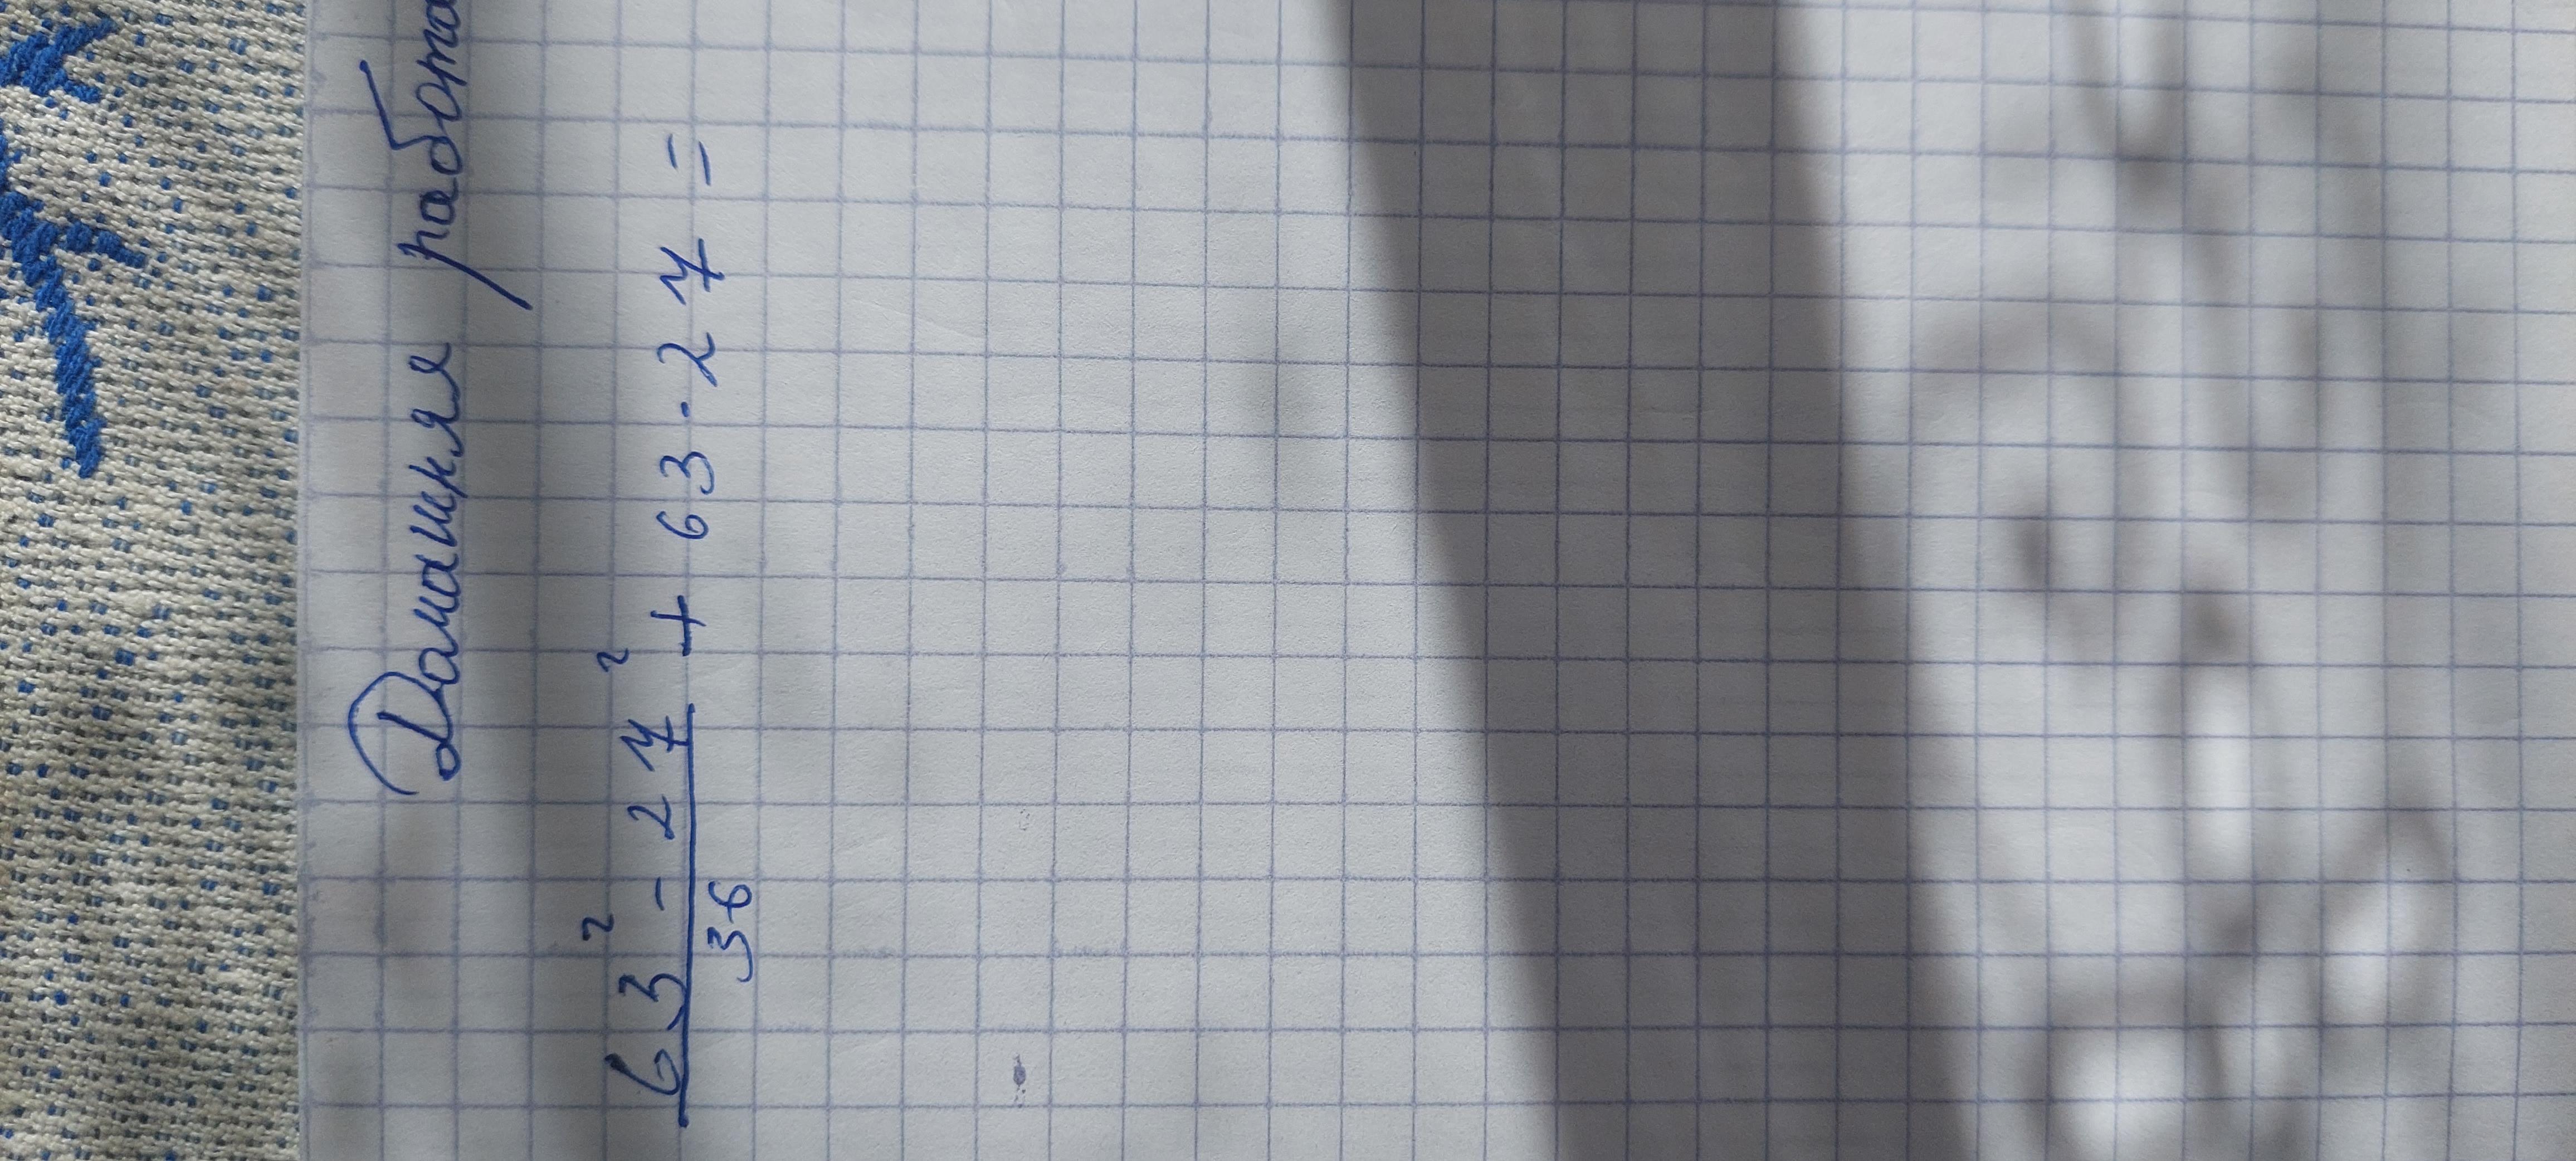 Домашкяя работа
63² - 27² + 63 · 27 =
36